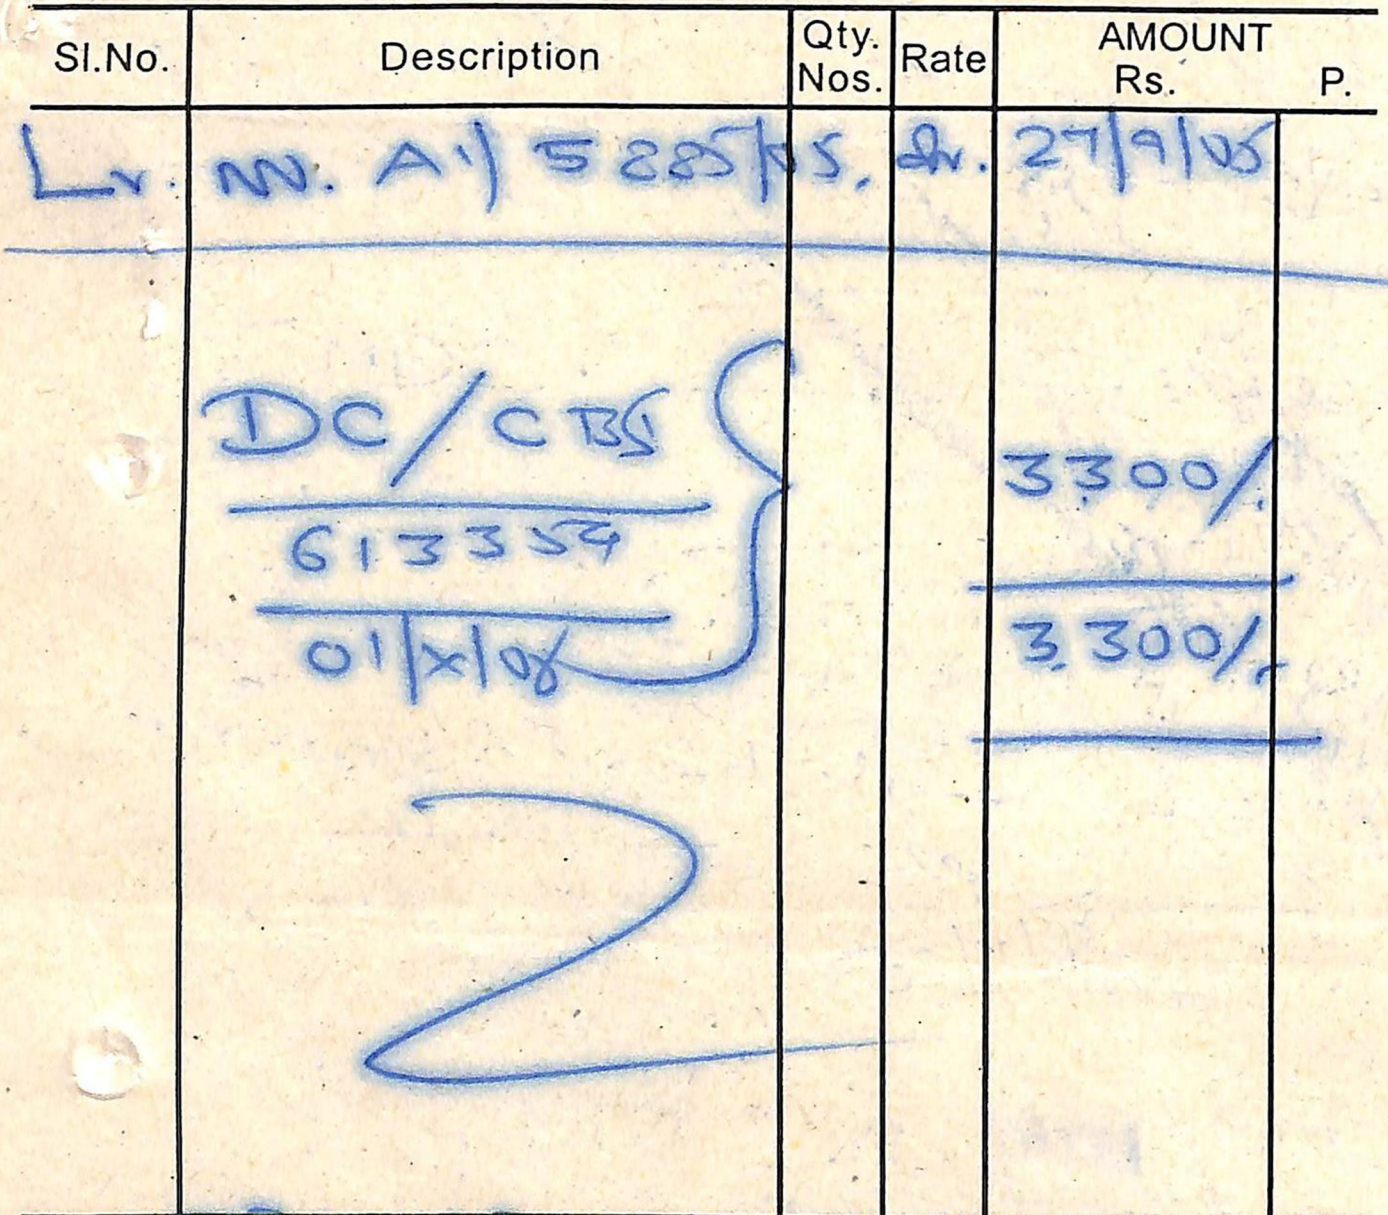 Sl.No. Description Qty. Nos. Rate AMOUNT Rs. P.
Lr. No. A1/ 5285/05, dt. 27/9/05
DC/CBS
613354
3300/-
01/X/05
3,300/-